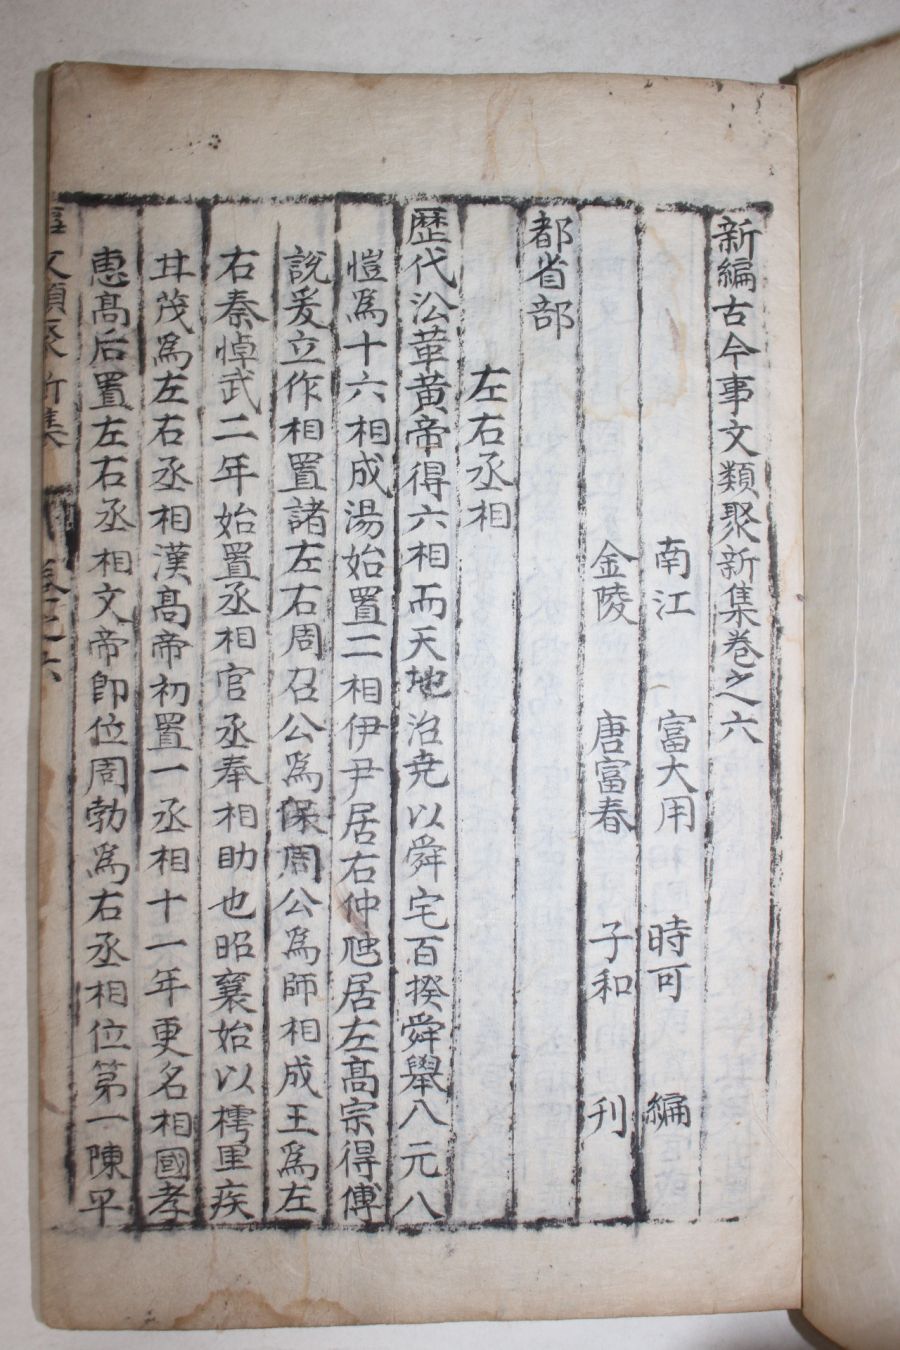 新編古今事文類聚新集卷之六
南江 富大用 時可 編
金陵 唐富春 子和 刊
都省部
左右丞相
歷代沿革黃帝得六相而天地治尭以舜宅百揆舜舉八元八
愷爲十六相成湯始置二相伊尹居右仲虺居左髙宗得傅
說爰立作相置諸左右周召公爲保周公爲師相成王爲左
右秦悼武二年始置丞相官丞奉相助也昭襄始以樗里疾
甘茂爲左右丞相漢髙帝初置一丞相十一年更名相國孝
惠髙后置左右丞相文帝卽位周勃爲右丞相位第一陳平
事文類聚新集 卷之六